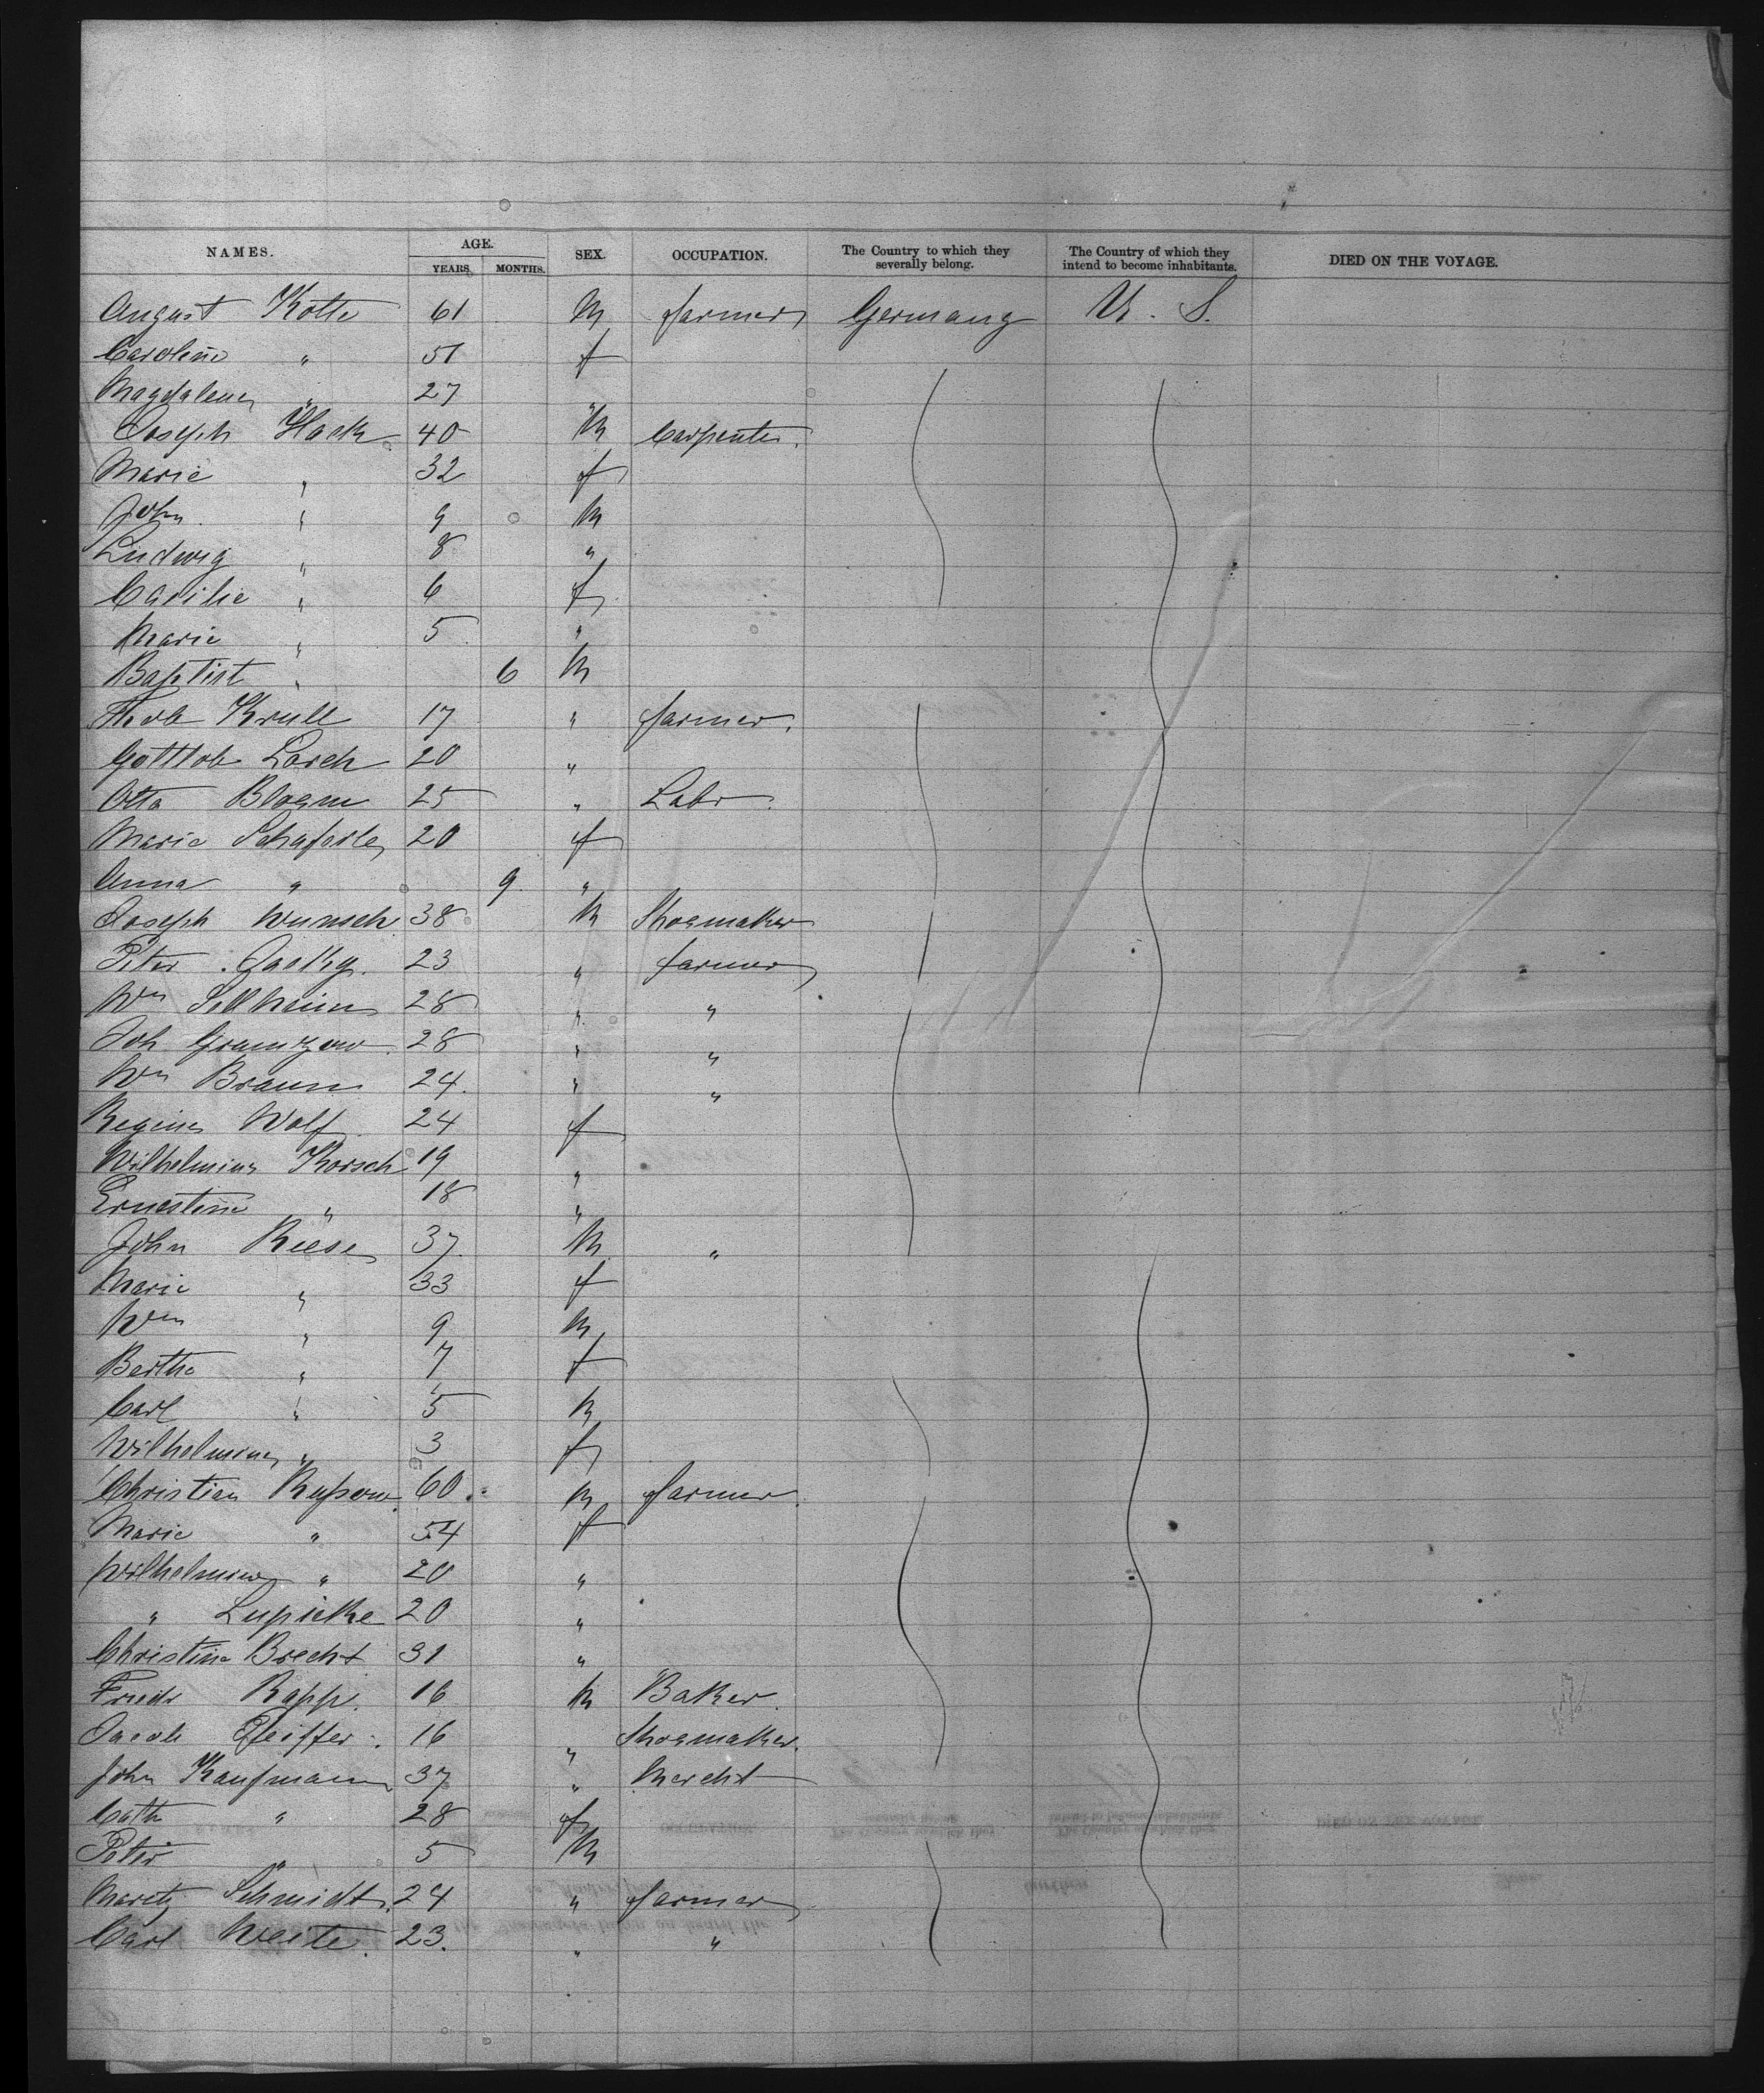 NAMES. AGE. YEARS. MONTHS. SEX. OCCUPATION. The Country to which they severally belong. The Country of which they intend to become inhabitants. DIED ON THE VOYAGE.
August Kotte 61 M farmer Germany U. S.
Caroline " 51 f
Magdalena " 27 "
Joseph Hack 40 M Carpenter.
Marie " 32 f
John " 9 M
Ludwig " 8 "
Cacilie " 6 f
Marie " 5 "
Baptist " 6 M
Krull 17 " farmer.
Gottlob Lorch 20 "
Otto Bloem 25 " Labr
Marie Schaferle 20 f
Anna " 9 "
Joseph Wunsch 38 M Shoemaker
Peter 23 " farmer
Wm Sellheim 28 " "
Joh Gramzow 28 " "
Wm Braun 24 " "
Regina Wolf 24 f
Wilhelmina Korsch 19 "
Ernestine " 18 "
John Riese 37 M "
Marie " 33 f
Wm " 9 M
Bertha " 7 f
Carl " 5 M
Wilhelmina " 3 f
Christian Rußow 60 M farmer
Marie " 54 f
Wilhelmina " 20 "
" Lupicke 20 "
Christine Brecht 31 "
Friedr Rapp 16 M Baker
Jacob Pfeiffer 16 " Shoemaker.
John Kaufmann 37 " Mercht
Cath " 28 f
Peter " 5 M
Moritz Schmidt 24 " farmer
Carl Weite 23. " "